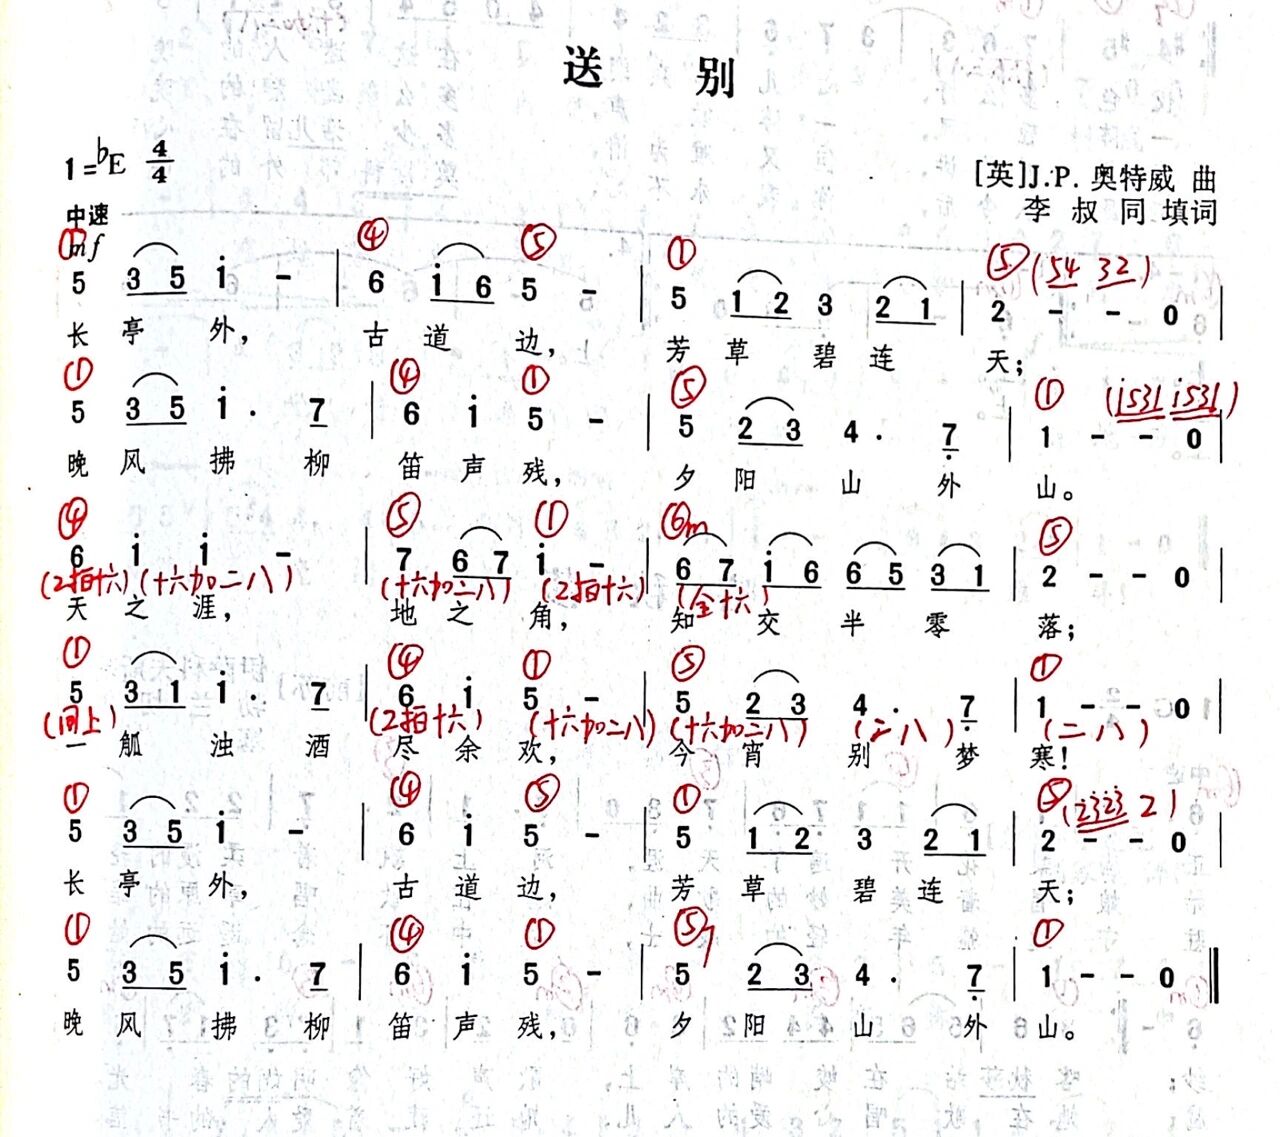 送 别
1=♭E 4/4
[英]J.P.奥特威 曲
中速
李叔同 填词
mf
① ④ ⑤ ① ⑤ (54 32)
5 3 5 i - | 6 i 6 5 - | 5 1 2 3 2 1 | 2 - - 0 |
长 亭 外, 古 道 边, 芳 草 碧 连 天;
① ④ ① ⑤ ① (i531 i531)
5 3 5 i . 7 | 6 i 5 - | 5 2 3 4 . 7 | 1 - - 0 |
晚 风 拂 柳 笛 声 残, 夕 阳 山 外 山。
④ ⑤ ① ⑥m ⑤
6 i i - | 7 6 7 i - | 6 7 i 6 6 5 3 1 | 2 - - 0 |
(2拍十六) (十六加二八) (十六加二八) (2拍十六) (全十六)
天 之 涯, 地 之 角, 知 交 半 零 落;
① ④ ① ⑤ ①
5 3 1 i . 7 | 6 i 5 - | 5 2 3 4 . 7 | 1 - - 0 |
(同上) (2拍十六) (十六加二八) (十六加二八) (二八) (二八)
一 觚 浊 酒 尽 余 欢, 今 宵 别 梦 寒!
① ④ ⑤ ① ⑤ (2323 2)
5 3 5 i - | 6 i 5 - | 5 1 2 3 2 1 | 2 - - 0 |
长 亭 外, 古 道 边, 芳 草 碧 连 天;
① ④ ① ⑤7 ①
5 3 5 i . 7 | 6 i 5 - | 5 2 3 4 . 7 | 1 - - 0 ‖
晚 风 拂 柳 笛 声 残, 夕 阳 山 外 山。